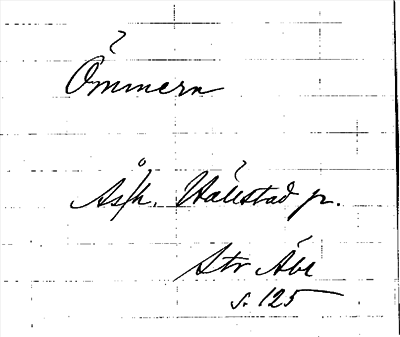 Ömmern
Åsh. Hälestad pr.
Str Äbe
s. 125